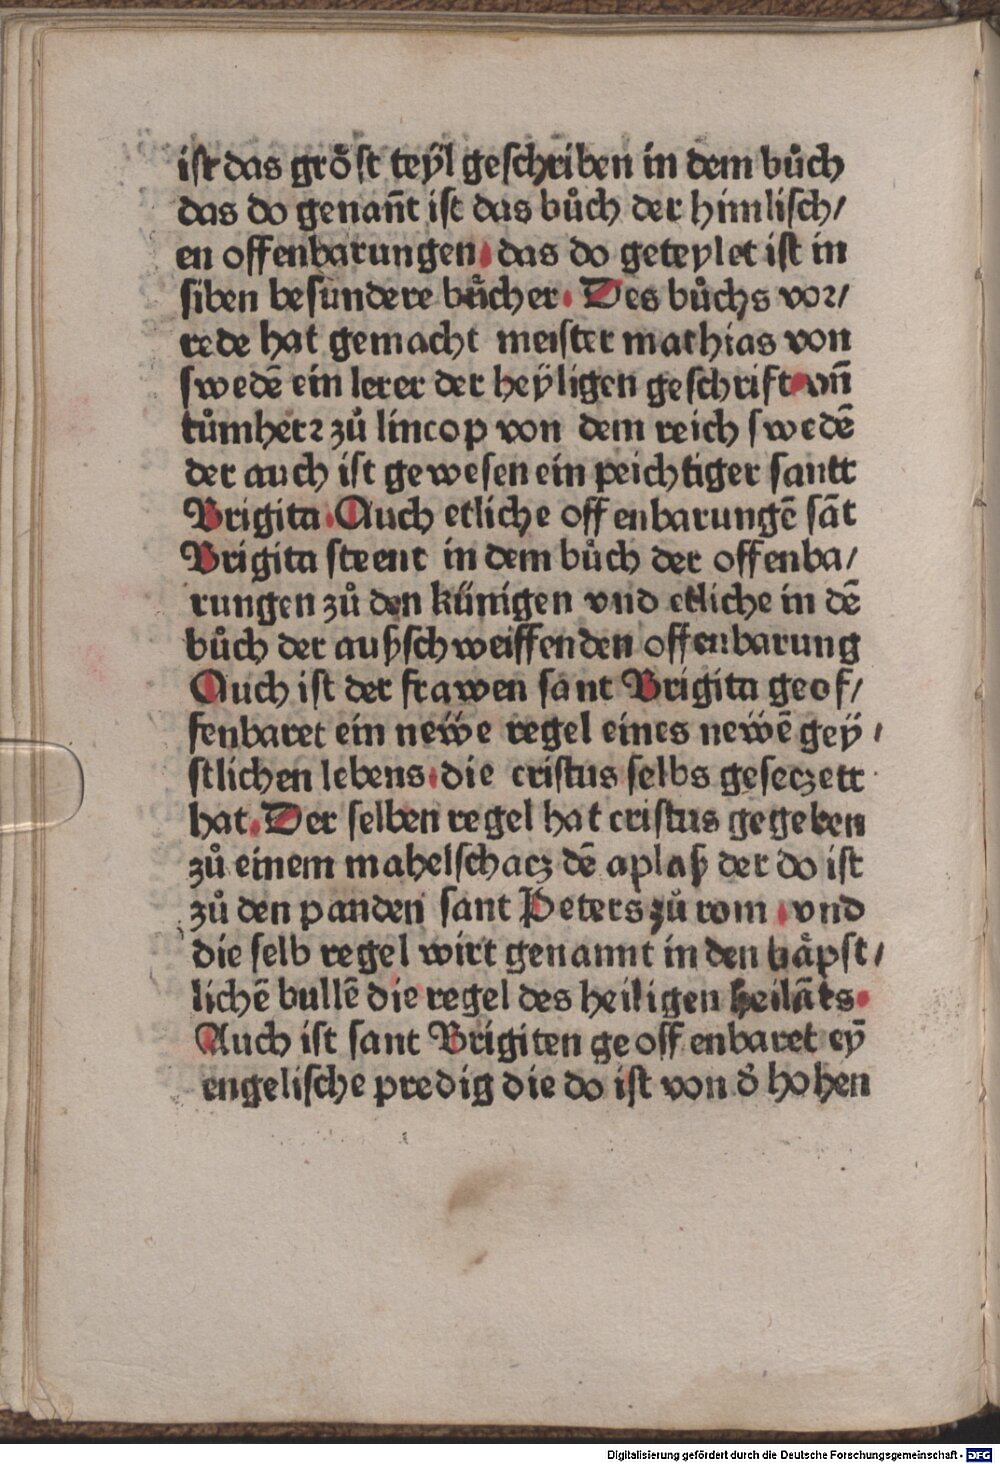 ist das gröst teÿl geschriben in dem bůch
das do genañt ist das bůch der himlisch/
en offenbarungen. das do geteylet ist in
siben besundere bůcher. Des bůchs vor/
rede hat gemacht meister mathias von
swedē ein lerer der heÿligen geschrift. vñ
tůmherr zů lincop von dem reich swedē
der auch ist gewesen ein peichtiger santt
Brigita. Auch etliche offenbarungē sāt
Brigita steent in dem bůch der offenba/
rungen zů den künigen vnd etliche in dē
bůch der außschweiffenden offenbarung
Auch ist der frawen sant Brigita geof/
fenbaret ein neẅe regel eines neẅē geÿ/
stlichen lebens. die cristus selbs geseczett
hat. Der selben regel hat cristus gegeben
zů einem mahelschacz dē aplaß der do ist
zů den panden sant Peters zů rom. vnd
die selb regel wirt genannt in den båpst/
lichē bullē die regel des heiligen heilāts.
Auch ist sant Brigiten geoffenbaret eȳ
engelische predig die do ist von d̓ hohen
Digitalisierung gefördert durch die Deutsche Forschungsgemeinschaft - DFG